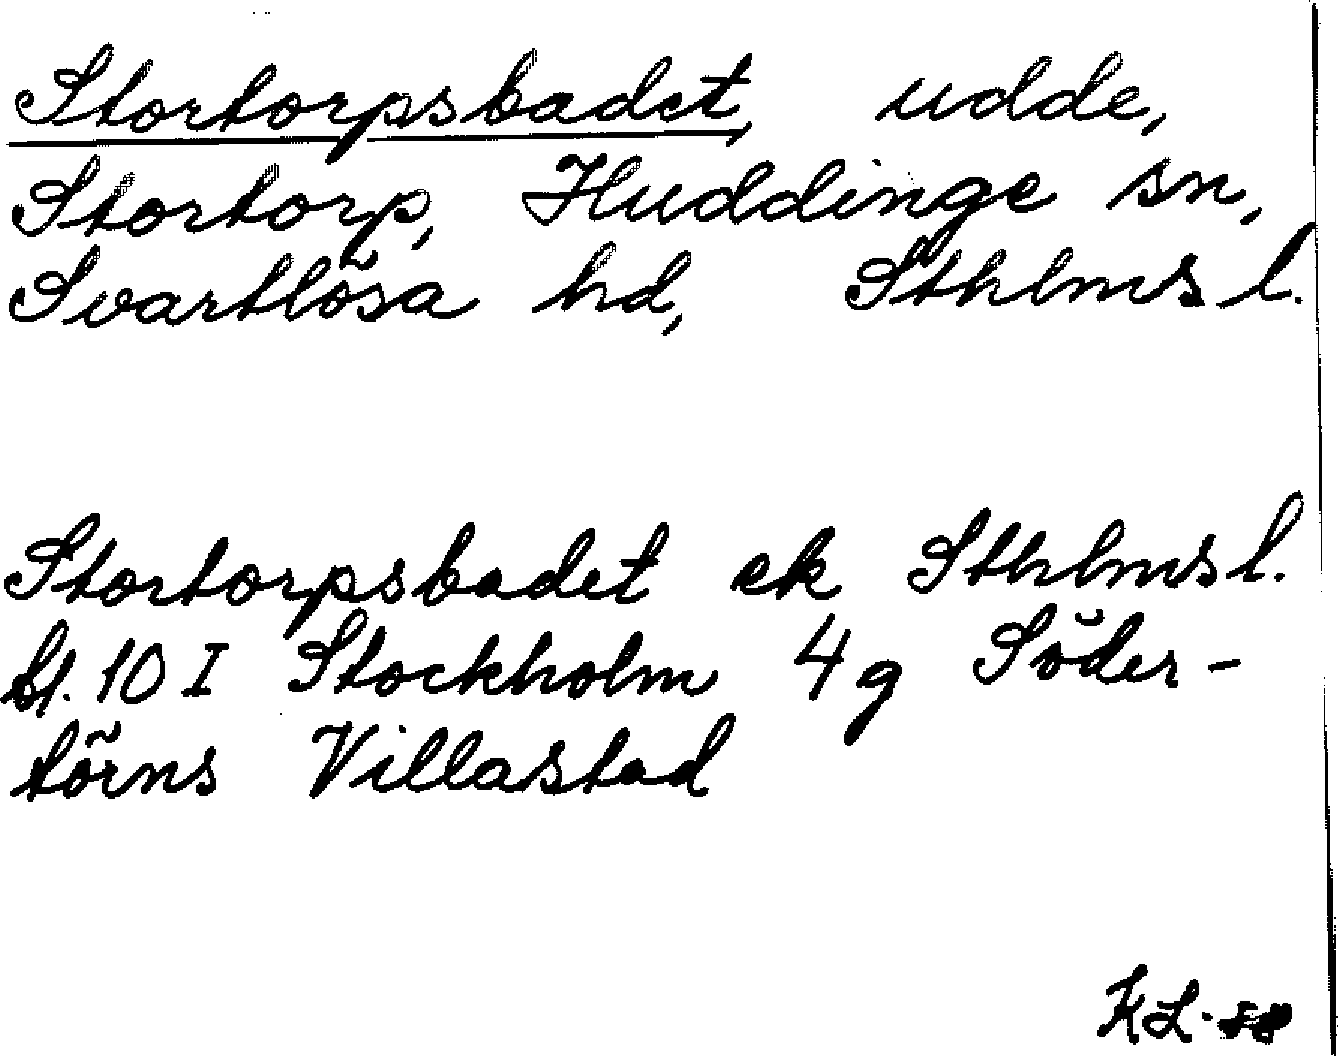 Stortorpsbadet, udde,
Stortorp, Huddinge sn,
Svartlösa hd, Sthlms l.
Stortorpsbadet ek Sthlms l.
bl. 10 I Stockholm 4g Söder-
törns Villastad
KL-58